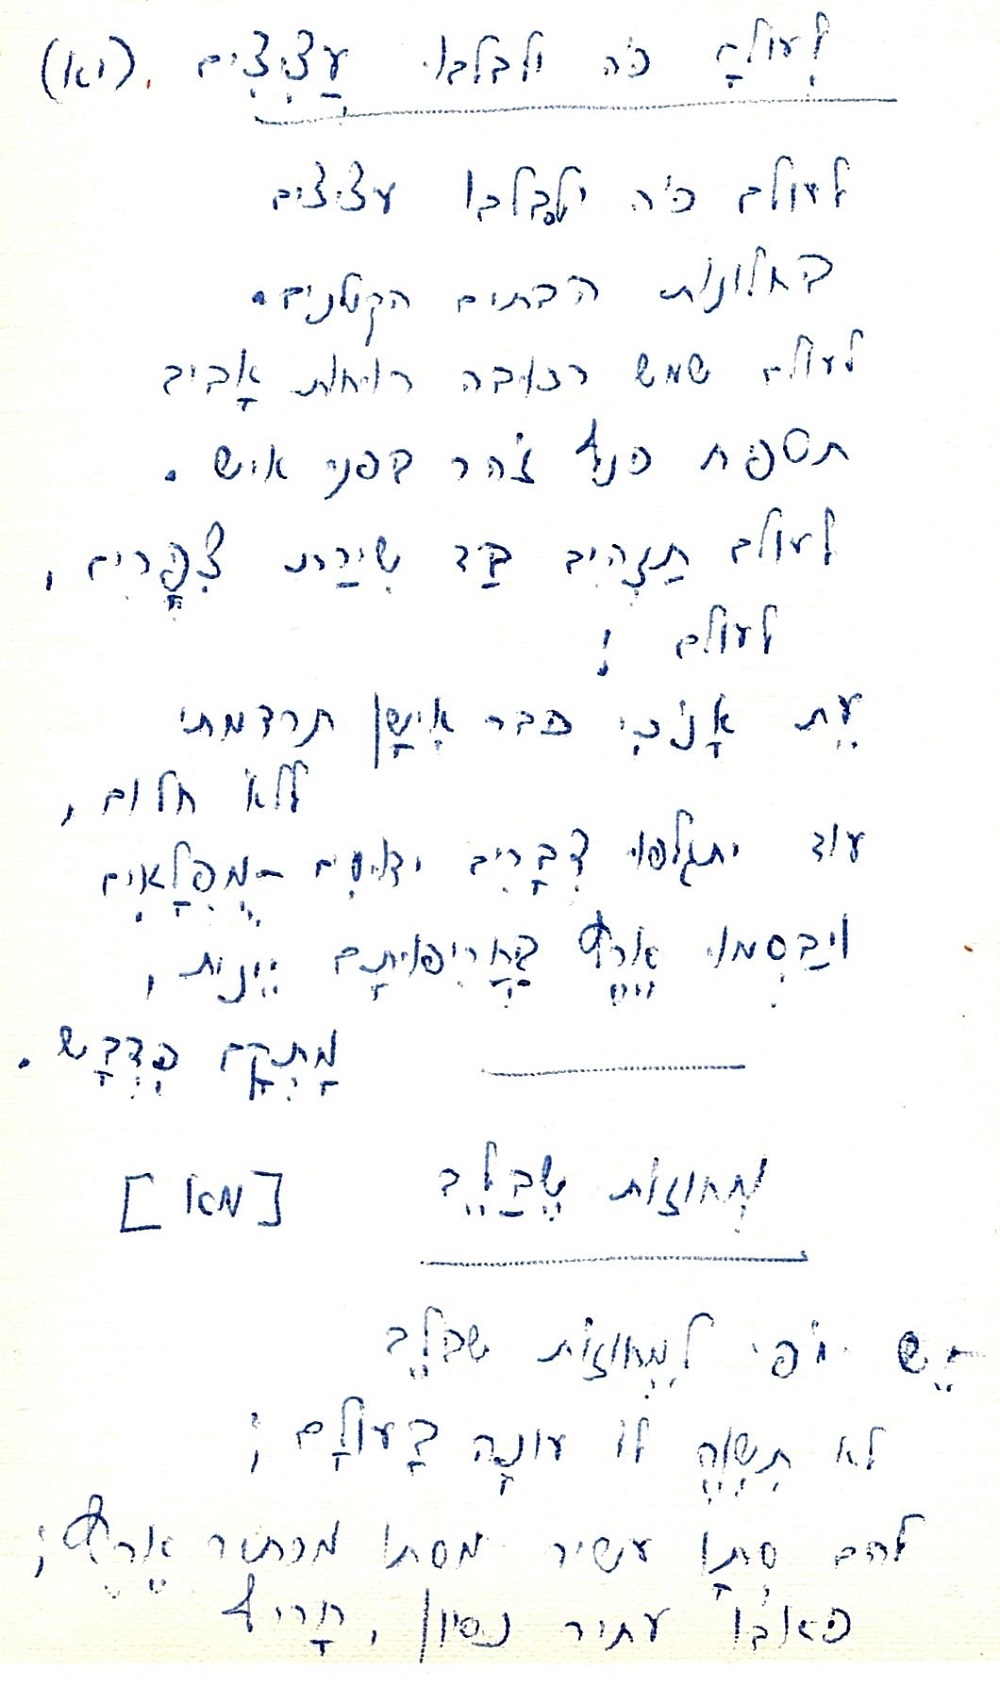 לְעוֹלָם כֹּה יִלבלבוּ עֲצִיצִים. (ואו)
לעולם כֹּה ילבלבו עציצים
בחלונות הבתים הקטנים.
לעולם שמש רוות אָביב
תטפח כנף צֹהר בפני איש.
לעולם תַּזהיב בַּד שִׁירַת צִפֳּרִים,
לעולם!
עֵת אָנֹכִי כבר אִישָׁן תרדמתי
ללא חלום,
עוד יתגלפוּ דְּבָרִים ידוּעִים -מֻפְלָאִים
ויְבַסְמוּ אֶרֶץ בַּחֲרִיפוּתָם יֵינִית,
מָתְקָם כִּדְבָשׁ.
מְחוֹזוֹת שֶׁבַלֵּב [מאו]
יֵשׁ יֹפי לִמְחוֹזוֹת שבלֵּב
לא תִּשְׁוֶה לוֹ עוֹנָה בָּעוֹלָם;
להם סְתָו עשיר מסתו מכתור אֶרֶץ;
כאבוֹ עתיר נסיון, חָריף